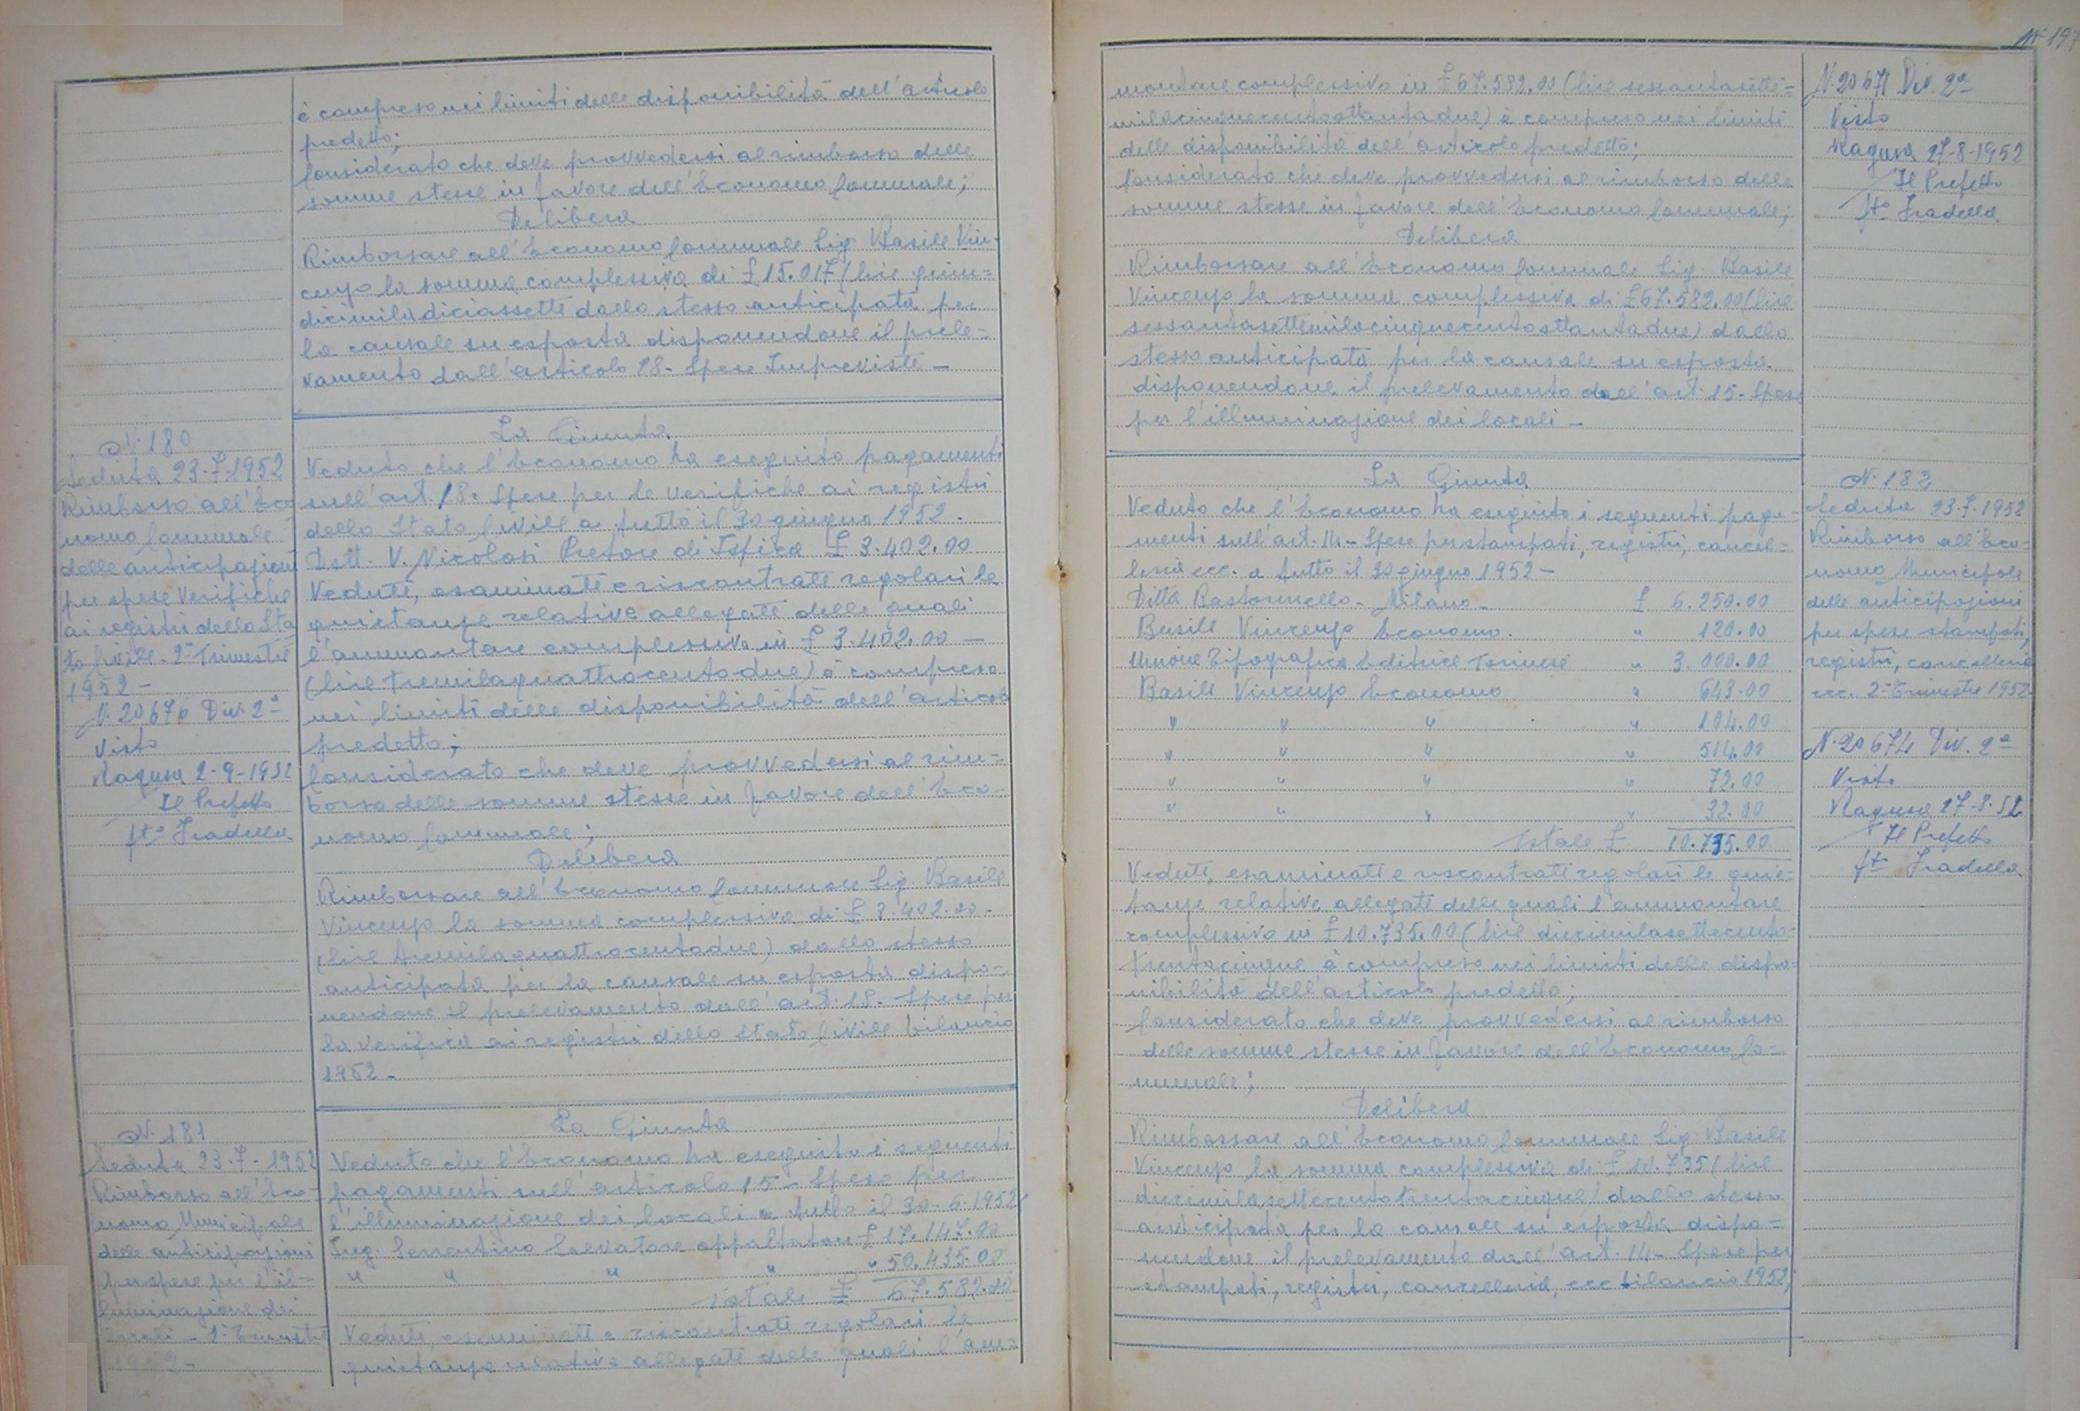 è compreso nei limiti delle disponibilità dell'articolo
predetto;
Considerato che deve provvedersi al rimborso delle
somme stesse in favore dell'Economo Comunale;
Delibera
Rimborsare all'Economo Comunale Sig. Basile Vin-
cenzo la somma complessiva di £ 15.017 (lire quin=
dicimiladiciassette dallo stesso anticipata per
la causale su esposta disponendone il prele=
vamento dall'articolo 28- Spese Impreviste -
N. 180
Seduta 23-7-1952
Rimborso all'Eco
nomo Comunale
delle anticipazioni
per spese Verifiche
ai registri dello Sta
to Civile- 2° Trimestre
1952 -
N. 20676 Div. 2ª
Visto
Ragusa 2-9-1952
Il Prefetto
fto Fradella
La Giunta
Veduto che l'Economo ha eseguito pagamenti
sull'art. 18- Spese per le verifiche ai registri
dello Stato Civile a tutto il 30 giugno 1952.
Dott. V. Nicolosi Pretore di Ispica £ 3.402.00
Vedute, esaminate e riscontrate regolari le
quietanze relative allegate delle quali
l'ammontare complessivo in £ 3.402.00 -
(lire tremilaquattrocentodue) è compreso
nei limiti delle disponibilità dell'articolo
predetto;
Considerato che deve provvedersi al rim=
borso delle somme stesse in favore dell'Eco-
nomo Comunale;
Delibera
Rimborsare all'Economo Comunale Sig. Basile
Vincenzo la somma complessiva di £ 3.402.00-
(lire tremilaquattrocentodue) dallo stesso
anticipata per la causale su esposta dispo-
nendone il prelevamento dall'art. 18- Spese per
la verifica ai registri dello Stato Civile bilancio
1952-
N. 181
Seduta 23-7-1952
Rimborso all'Eco-
nomo Municipale
delle anticipazioni
per spese per l'il=
luminazione dei
locali - 2° Trimestre
1952-
La Giunta
Veduto che l'Economo ha eseguito i seguenti
pagamenti sull'articolo 15- Spese per
l'illuminazione dei locali a tutto il 30-6-1952
Ing. Sorrentino Salvatore appaltatore £ 17.147.00
" " " " " 50.435.00
Totale £ 67.582.00
Vedute, esaminate e riscontrate regolari le
quietanze relative allegate delle quali l'am=
N° 197
montare complessivo in £ 67.582.00 (lire sessantasette=
milacinquecentottantadue) è compreso nei limiti
delle disponibilità dell'articolo predetto;
Considerato che deve provvedersi al rimborso delle
somme stesse in favore dell'Economo Comunale;
Delibera
Rimborsare all'Economo Comunale Sig. Basile
Vincenzo la somma complessiva di £ 67.582.00 (lire
sessantasettemilacinquecentottantadue) dallo
stesso anticipata per la causale su esposta
disponendone il prelevamento dall'art. 15- Spese
per l'illuminazione dei locali -
N. 20671 Div. 2ª
Visto
Ragusa 27-8-1952
Il Prefetto
fto Fradella
La Giunta
Veduto che l'Economo ha eseguito i seguenti paga-
menti sull'art. 14- Spese per stampati, registri, cancel=
leria ecc. a tutto il 30 giugno 1952-
Ditta Bastornello- Milano- £ 6.250.00
Basile Vincenzo Economo. " 120.00
Unione Tipografica Editrice Torinese " 3.000.00
Basile Vincenzo Economo " 643.00
" " " " 104.00
" " " " 514.00
" " " " 72.00
" " " " 32.00
Totale £ 10.735.00
Vedute, esaminate e riscontrate regolari le quie-
tanze relative allegate delle quali l'ammontare
complessivo in £ 10.735.00 (lire diecimilasettecento=
trentacinque è compreso nei limiti delle dispo=
nibilità dell'articolo predetto;
Considerato che deve provvedersi al rimborso
delle somme stesse in favore dell'Economo Co-
munale;
Delibera
Rimborsare all'Economo Comunale Sig. Basile
Vincenzo la somma complessiva di £ 10.735 (lire
diecimilasettecentotrentacinque) dallo stesso
anticipata per la causale su esposta dispo=
nendone il prelevamento dall'art. 14- Spese per
stampati, registri, cancelleria, ecc bilancio 1952;
N. 182
Seduta 23-7-1952
Rimborso all'Eco=
nomo Municipale
delle anticipazioni
per spese stampati,
registri, cancelleria
ecc. 2° Trimestre 1952-
N. 20674 Div. 2ª
Visto
Ragusa 27-8-52
Il Prefetto
fto Fradella